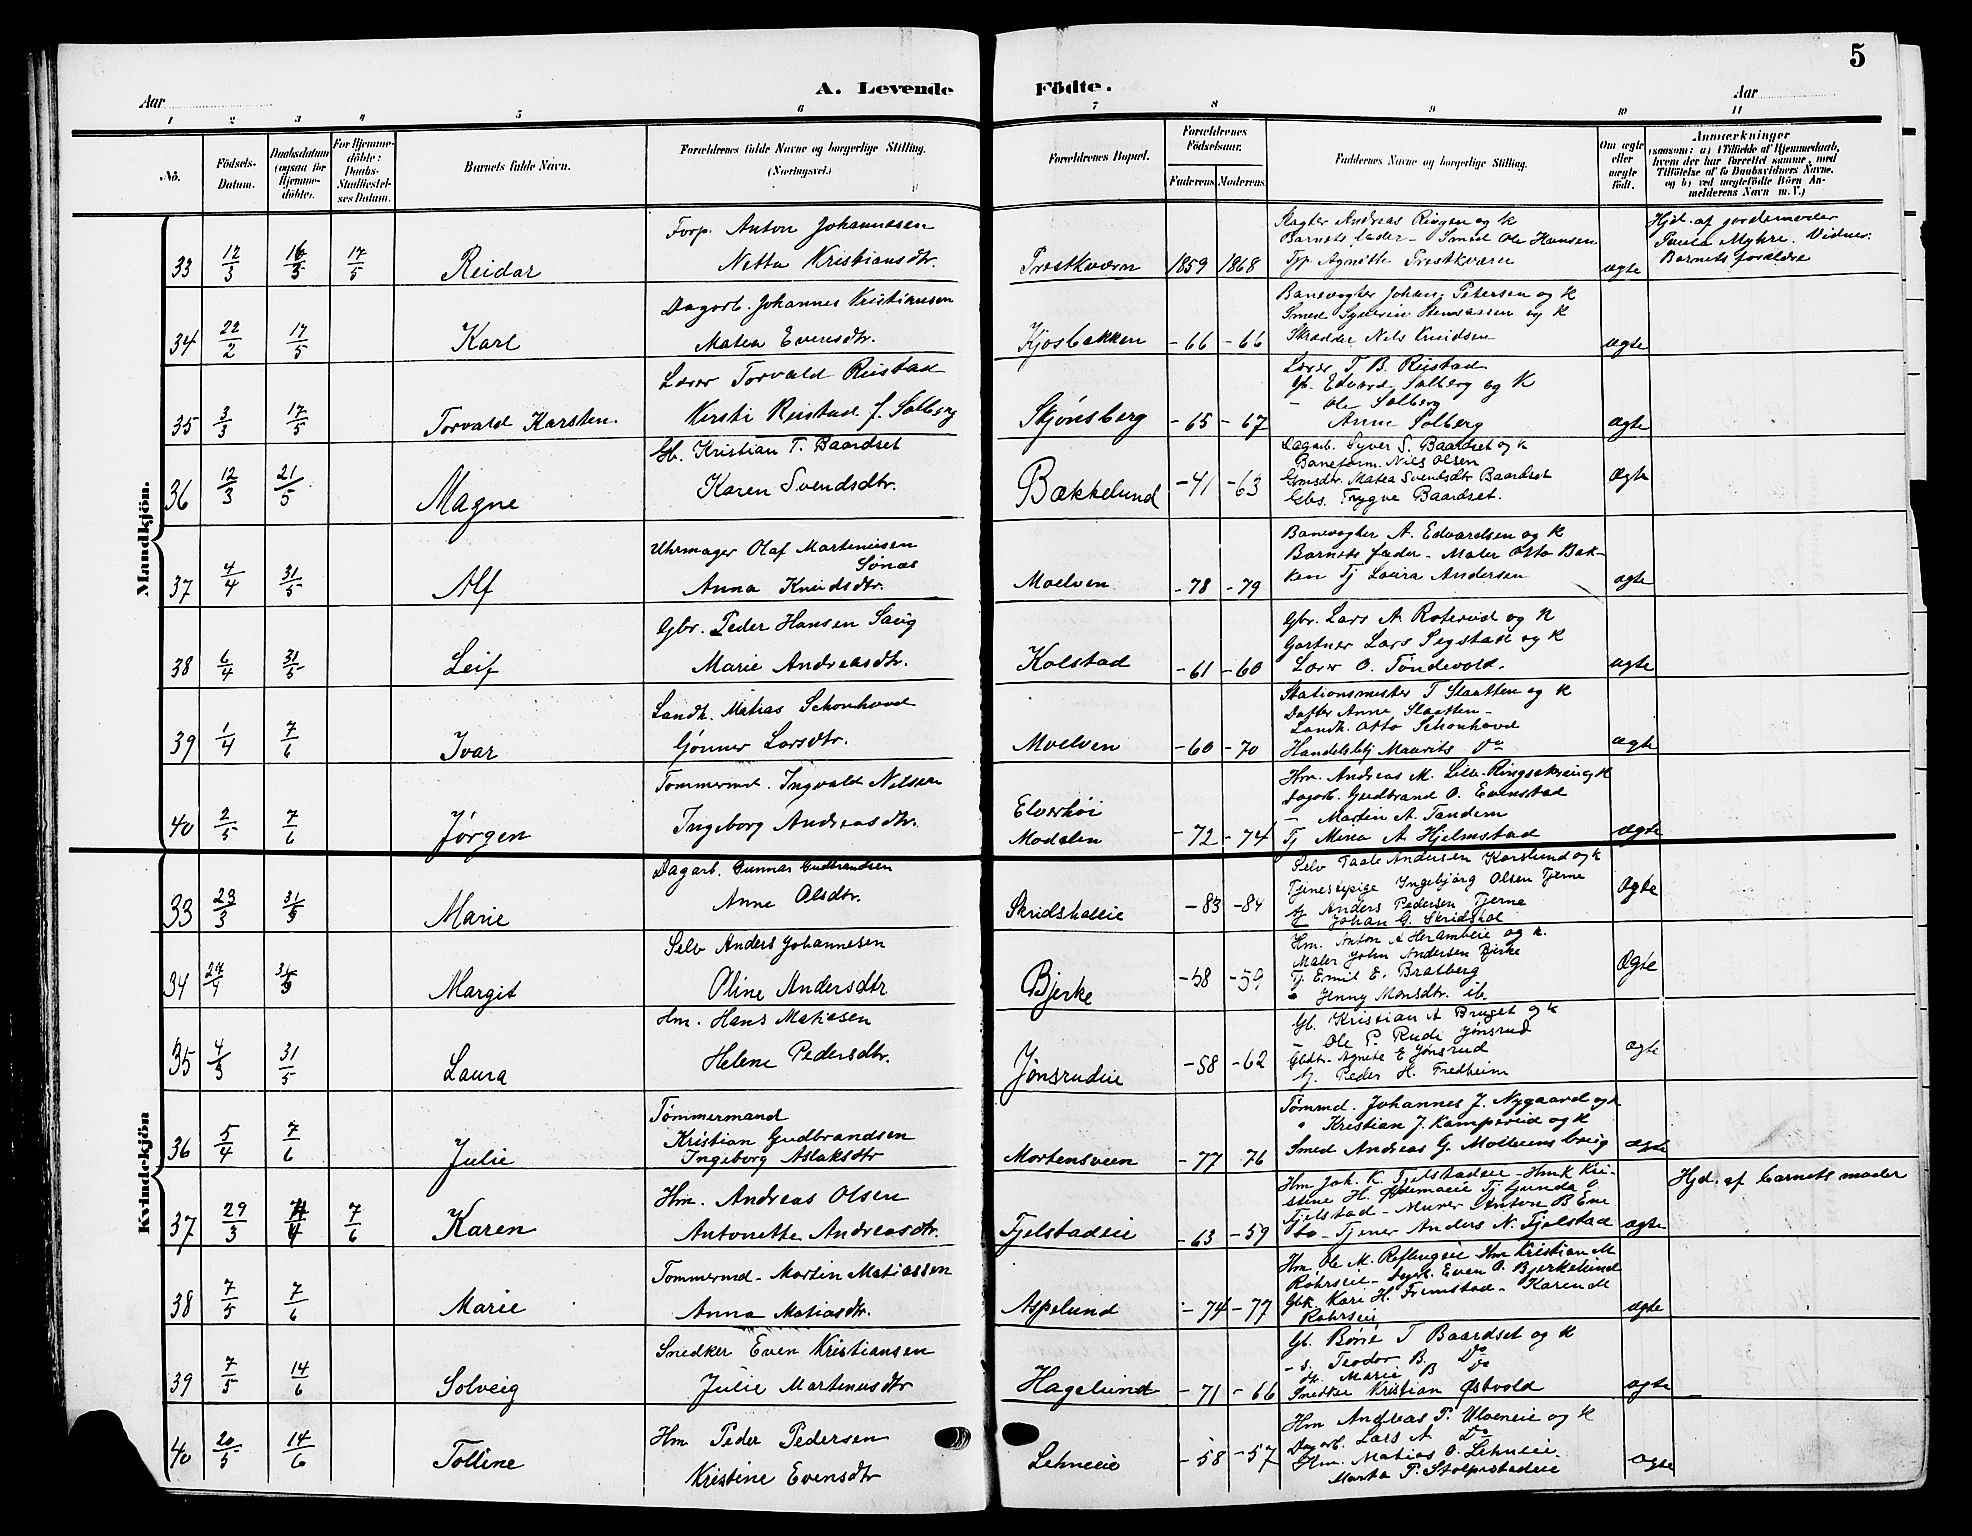 5
Aar
A. Levende
Födte.
Aar
1 2 3 4 5 6 7 8 9 10 11
No.
Födsels-
Datum.
Daabsdatum
(ogsaa for
Hjemme-
döbte).
For Hjemme-
döbte:
Daabs-
Stadfæstel-
ses Datum.
Barnets fulde Navn.
Forældrenes fulde Navne og borgerlige Stilling.
(Næringsvei.)
Forældrenes Bopæl.
Forældrenes
Födselsaar.
Faderens. Moderens.
Faddernes Navne og borgerlige Stilling.
Om ægte
eller
uægte
födt.
Anmærkninger
(saasom: a) i Tilfælde af Hjemmedaab,
hvem der har forrettet samme, med
Tilföielse af to Daabsvidners Navne,
og b) ved uægtefödte Börn An-
melderens Navn m. V.)
Mandkjön.
33 12/3 16/3 17/5 Reidar
Forp. Anton Johannesen
Netta Kristiansdtr.
Prestkværn 1859 1868
Andreas Ringen og K
Barnets fader - Smed Ole Hansen
Tj. Agnethe Prestkværn
ægte
Hjd. af jordemoder
Paula Myhre. Vidner:
Barnets forældre
34 22/2 17/5 Karl
Dagarb. Johannes Kristiansen
Matea Evensdtr.
Kjosbakken -66 -66
Banevogter Johan Petersen og K
Smed og K
Skrædder Nils Knudsen
ægte
35 3/3 17/5 Torvald Karsten
Lærer Torvald Rustad
Kersti Rustad f. Solberg
Skjönsberg -65 -67
Lærer T. B. Rustad
Gb. Edvard Solberg og K
- Ole Solberg
Anne Solberg
ægte
36 12/3 21/5 Magne
Gb. Kristian T. Baardset
Karen Svendsdtr.
Bækkelund -41 -63
Dagarb. Syver S. Baardset og k
Baneform. Nils Olsen
Matea Svendsdtr Baardset
Gbs. Trygve Baardset.
Ægte
37 4/4 31/5 Alf
Uhrmager Olaf Martinusen
Sønas
Anna Knudsdtr.
Moelven -78 -79
Banevogter A. Edvardsen og K
Barnets fader - Maler Otto Bak-
ken Tj Laura Andersen
ægte
38 6/4 31/5 Leif
Gbr. Peder Hansen Saug
Marie Andreasdtr.
Kolstad -61 -60
Gbr. Lars A. Roterud og K
Gartner Lars Segstad og K
Lærer O. Töndevold.
ægte
39 1/4 7/6 Ivar
Landh. Matias Schonhovd
Gönner Larsdtr.
Moelven -60 -70
Stationsmester T Slaatten og K
Datter Anne Slaatten -
Landh. Otto Schonhovd
Handelsbtj Maurits Do
ægte
40 2/5 7/6 Jørgen
Tømmermd. Ingvald Nilsen
Ingeborg Andreasdtr.
Elverhöi
Modalen -72 -74
Hm. Andreas M. Lille-Ringsakerie og K
Dagarb. Gudbrand O. Evenstad
- Morten A. Tandem
Tj Mina A Hjelmstad
ægte
Kvindekjön
33 23/3 31/5 Marie
Dagarb. Gunnar Gudbrandsen
Anne Olsdtr.
Skridsholeie -83 -84
Selv Taale Andersen Korslund og k
Tjenestepige Ingebjørg Olsen Tjerne
Anders Pedersen Tjerne
Johan G. Skridshol
Ægte
34 24/4 31/5 Margit
Selv Anders Johannesen
Oline Andersdtr
Bjerke -58 -59
Hm. Anton A Herambeie og k.
Maler John Andersen Bjerke
Tj. Emil E. Bratberg
" Jenny Monsdtr. ib.
Ægte
35 4/3 31/5 Laura
Hm. Hans Matiasen
Helene Pedersdtr.
Jønsrudeie -58 -62
Gb. Kristian A Bruget og k
- Ole P. Rudi Jønsrud
Gbdtr. Agnete E Jønsrud
Peder H. Fredheim
ægte
36 5/4 7/6 Julie
Tømmermand
Kristian Gudbrandsen
Ingeborg Aslaksdtr
Mortensveen -77 76
Tømmd. Johannes J. Nygaard og k
" Kristian J. Kamperud og K
Smed Andreas G. Moelvens brug
ægte
37 29/3 4 7/6 Karen
Hm. Andreas Olsen
Antonette Andreasdtr.
Tjelstadeie -63 -59
Hm Joh. K. Tjelstadeie - Hmk Kri-
stine H. Tj Gunda
Tjelstad - Murer Anton B Ene
bo - Tjener Anders N. Tjelstad
ægte
Hjd. af barnets moder
38 7/5 7/6 Marie
Tømmermd - Martin Matiassen
Anna Matiasdtr.
Aspelund -74 -77
Hm Ole M. Reflingeie Hm Kristian M
Røhrseie - Even O. Bjerkelund
Gbk Kari H. Fremstad - Karen M
Røhrseie
ægte
39 7/5 14/6 Solveig
Snedker Even Kristiansen
Julie Martinusdtr
Hagelund -71 -66
Gb. Børe T Baardset og K
- s. Teodor B. Do
dt. Marie B Do
Snedker Kristian Østvold
ægte
40 20/5 14/6 Tolline
Hm Peder Pedersen
Kristine Evensdtr
Lehneie -58 -57
Hm Andreas P. Ulveneie og K
Dagarb. Lars A Do
Hm. Matias O. Lehneie
Marta P. Stolpestadeie
ægte